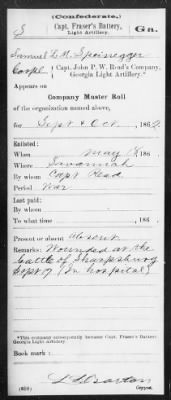 (Confederate.)
S Capt. Fraser's Battery, Ga.
Light Artillery.
Samuel L. M. Speissegger
Corpl, Capt. John P. W. Read's Company,
Georgia Light Artillery.*
Appears on
Company Muster Roll
of the organization named above,
for Sept & Oct, 1862.
Enlisted:
When May 18, 186
Where Savannah
By whom Capt Read
Period War
Last paid:
By whom
To what time, 186
Present or absent Absent
Remarks: Wounded at the
battle of Sharpsburg
Sept 17 (In hospital)
*This company subsequently became Capt. Fraser's Battery
Georgia Light Artillery.
Book mark:
(650) Copyist.